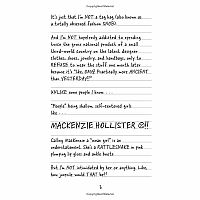 It's just that I'm NOT a tag hag (also known as
a totally obsessed fashion SNOB)!
And I'm NOT hopelessly addicted to spending
twice the gross national product of a small
third-world country on the latest designer
clothes, shoes, jewelry, and handbags, only to
REFUSE to wear the stuff next month later
because it's "like, OMG! Practically more ANCIENT
than YESTERDAY!!"
UNLIKE some people I know . . .
"People" being shallow, self-centered girls
like . . .
MACKENZIE HOLLISTER ☹!!
Calling Mackenzie a "mean girl" is an
understatement. She's a RATTLESNAKE in pink
plumping lip gloss and ankle boots.
But I'm NOT intimidated by her or anything. Like,
how juvenile would THAT be?!